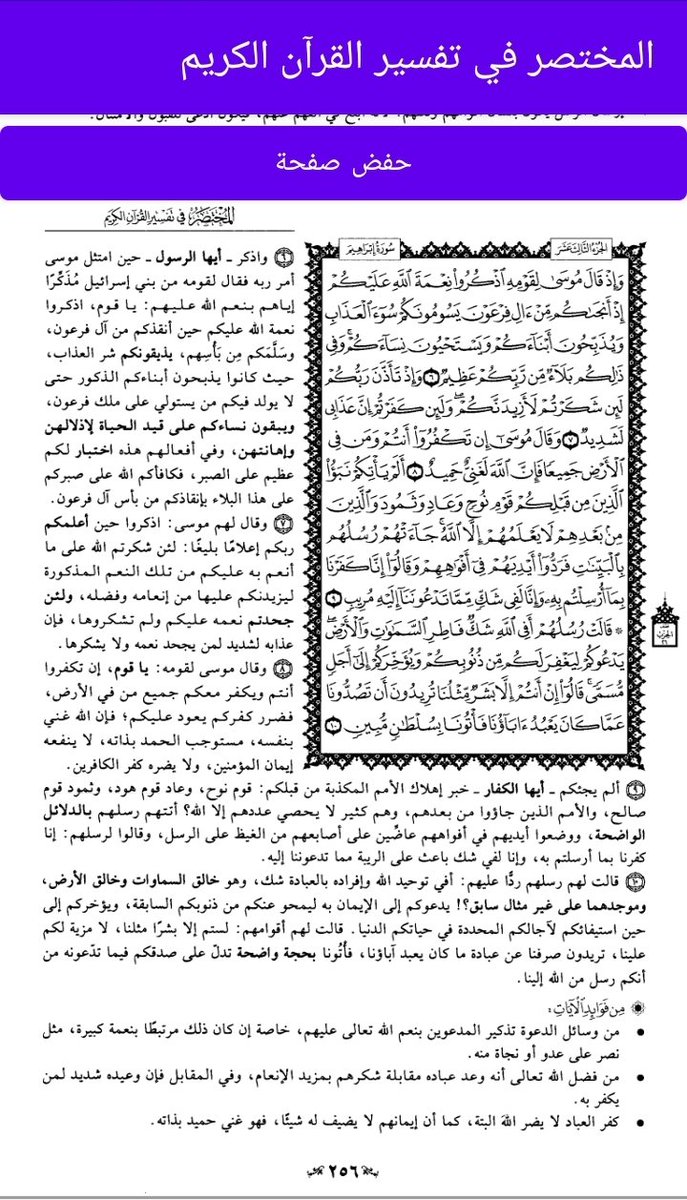 المختصر في تفسير القرآن الكريم
حفض صفحة
المختصر في تفسير القرآن الكريم
الجزء الثالث عشر
سورة إبراهيم
وَإِذۡ قَالَ مُوسَىٰ لِقَوۡمِهِ ٱذۡكُرُواْ نِعۡمَةَ ٱللَّهِ عَلَيۡكُمۡ
إِذۡ أَنجَىٰكُم مِّنۡ ءَالِ فِرۡعَوۡنَ يَسُومُونَكُمۡ سُوٓءَ ٱلۡعَذَابِ
وَيُذَبِّحُونَ أَبۡنَآءَكُمۡ وَيَسۡتَحۡيُونَ نِسَآءَكُمۡۚ وَفِي
ذَٰلِكُم بَلَآءٞ مِّن رَّبِّكُمۡ عَظِيمٞ ٦ وَإِذۡ تَأَذَّنَ رَبُّكُمۡ
لَئِن شَكَرۡتُمۡ لَأَزِيدَنَّكُمۡۖ وَلَئِن كَفَرۡتُمۡ إِنَّ عَذَابِي
لَشَدِيدٞ ٧ وَقَالَ مُوسَىٰٓ إِن تَكۡفُرُوٓاْ أَنتُمۡ وَمَن فِي
ٱلۡأَرۡضِ جَمِيعٗا فَإِنَّ ٱللَّهَ لَغَنِيٌّ حَمِيدٌ ٨ أَلَمۡ يَأۡتِكُمۡ نَبَؤُاْ
ٱلَّذِينَ مِن قَبۡلِكُمۡ قَوۡمِ نُوحٖ وَعَادٖ وَثَمُودَ وَٱلَّذِينَ
مِنۢ بَعۡدِهِمۡ لَا يَعۡلَمُهُمۡ إِلَّا ٱللَّهُۚ جَآءَتۡهُمۡ رُسُلُهُم
بِٱلۡبَيِّنَٰتِ فَرَدُّوٓاْ أَيۡدِيَهُمۡ فِيٓ أَفۡوَٰهِهِمۡ وَقَالُوٓاْ إِنَّا كَفَرۡنَا
بِمَآ أُرۡسِلۡتُم بِهِۦ وَإِنَّا لَفِي شَكّٖ مِّمَّا تَدۡعُونَنَآ إِلَيۡهِ مُرِيبٖ ٩
۞ قَالَتۡ رُسُلُهُمۡ أَفِي ٱللَّهِ شَكّٞ فَاطِرِ ٱلسَّمَٰوَٰتِ وَٱلۡأَرۡضِۖ
يَدۡعُوكُمۡ لِيَغۡفِرَ لَكُم مِّن ذُنُوبِكُمۡ وَيُؤَخِّرَكُمۡ إِلَىٰٓ أَجَلٖ
مُّسَمّٗىۚ قَالُوٓاْ إِنۡ أَنتُمۡ إِلَّا بَشَرٞ مِّثۡلُنَا تُرِيدُونَ أَن تَصُدُّونَا
عَمَّا كَانَ يَعۡبُدُ ءَابَآؤُنَا فَأۡتُونَا بِسُلۡطَٰنٖ مُّبِينٖ ١٠
٦ واذكر ـ أيها الرسول ـ حين امتثل موسى
أمر ربه فقال لقومه من بني إسرائيل مُذَكِّرًا
إياهم بنعم الله عليهم: يا قوم، اذكروا
نعمة الله عليكم حين أنقذكم من آل فرعون،
وسَلَّمَكم مِن بَأْسِهم، يذيقونكم شر العذاب،
حيث كانوا يذبحون أبناءكم الذكور حتى
لا يولد فيكم من يستولي على ملك فرعون،
ويبقون نساءكم على قيد الحياة لإذلالهن
وإهانتهن، وفي أفعالهم هذه اختبار لكم
عظيم على الصبر، فكافأكم الله على صبركم
على هذا البلاء بإنقاذكم من بأس آل فرعون.
٧ وقال لهم موسى: اذكروا حين أعلمكم
ربكم إعلامًا بليغًا: لئن شكرتم الله على ما
أنعم به عليكم من تلك النعم المذكورة
ليزيدنكم عليها من إنعامه وفضله، ولئن
جحدتم نعمه عليكم ولم تشكروها، فإن
عذابه لشديد لمن يجحد نعمه ولا يشكرها.
٨ وقال موسى لقومه: يا قوم، إن تكفروا
أنتم ويكفر معكم جميع من في الأرض،
فضرر كفركم يعود عليكم؛ فإن الله غني
بنفسه، مستوجب الحمد بذاته، لا ينفعه
إيمان المؤمنين، ولا يضره كفر الكافرين.
٩ ألم يجئكم ـ أيها الكفار ـ خبر إهلاك الأمم المكذبة من قبلكم: قوم نوح، وعاد قوم هود، وثمود قوم
صالح، والأمم الذين جاؤوا من بعدهم، وهم كثير لا يحصي عددهم إلا الله؟ أتتهم رسلهم بالدلائل
الواضحة، ووضعوا أيديهم في أفواههم عاضِّين على أصابعهم من الغيظ على الرسل، وقالوا لرسلهم: إنا
كفرنا بما أرسلتم به، وإنا لفي شك باعث على الريبة مما تدعوننا إليه.
١٠ قالت لهم رسلهم ردًّا عليهم: أفي توحيد الله وإفراده بالعبادة شك، وهو خالق السماوات وخالق الأرض،
وموجدهما على غير مثال سابق؟! يدعوكم إلى الإيمان به ليمحو عنكم من ذنوبكم السابقة، ويؤخركم إلى
حين استيفائكم لآجالكم المحددة في حياتكم الدنيا. قالت لهم أقوامهم: لستم إلا بشرًا مثلنا، لا مزية لكم
علينا، تريدون صرفنا عن عبادة ما كان يعبد آباؤنا، فأْتُونا بحجة واضحة تدلّ على صدقكم فيما تدّعونه من
أنكم رسل من الله إلينا.
مِن فَوَائِدِ الآيَاتِ:
• من وسائل الدعوة تذكير المدعوين بنعم الله تعالى عليهم، خاصة إن كان ذلك مرتبطًا بنعمة كبيرة، مثل
نصر على عدو أو نجاة منه.
• من فضل الله تعالى أنه وعد عباده مقابلة شكرهم بمزيد الإنعام، وفي المقابل فإن وعيده شديد لمن
يكفر به.
• كفر العباد لا يضر اللهَ البتة، كما أن إيمانهم لا يضيف له شيئًا، فهو غني حميد بذاته.
٢٥٦